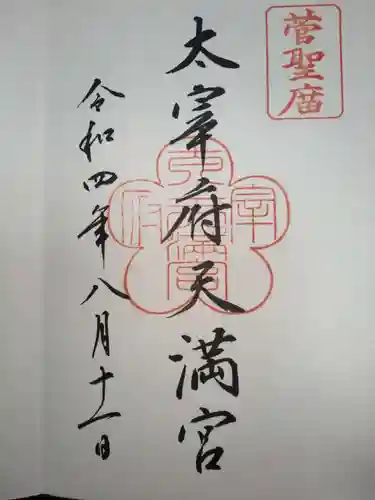 菅聖庿
太宰府天満宮
令和四年八月十一日